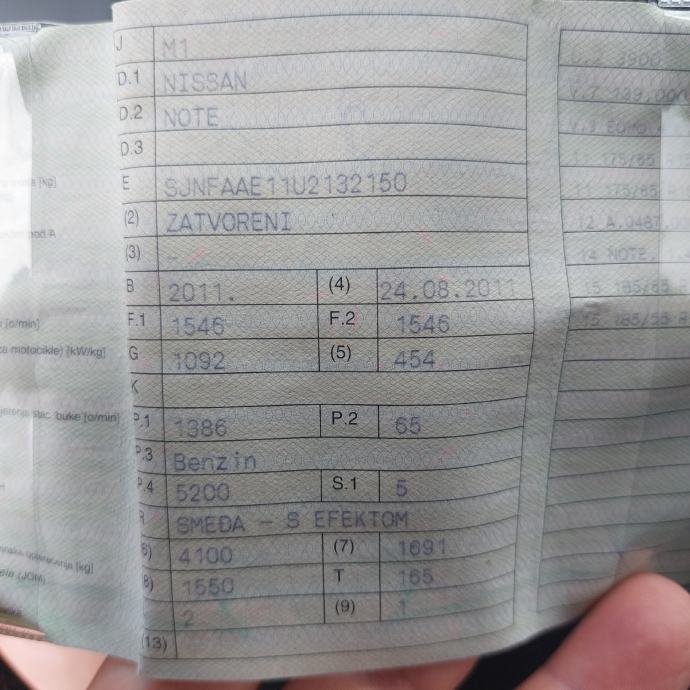 J M1
D.1 NISSAN
D.2 NOTE
D.3
E SJNFAAE11U2132150
(2) ZATVORENI
(3) –
B 2011. (4) 24.08.2011
F.1 1546 F.2 1546
G 1092 (5) 454
K
P.1 1386 P.2 65
P.3 Benzin
P.4 5200 S.1 5
R SMEĐA - S EFEKTOM
(6) 4100 (7) 1691
(8) 1550 T 165
2 (9) 1
(13)
[kg]
[o/min]
motocikle) [kW/kg]
buke [o/min]
[kg]
(JOM)
3900
V.7 139,000
11 175/65 R
12 A.0487
14 NOTE,
15 185/65 R
15 185/55 R